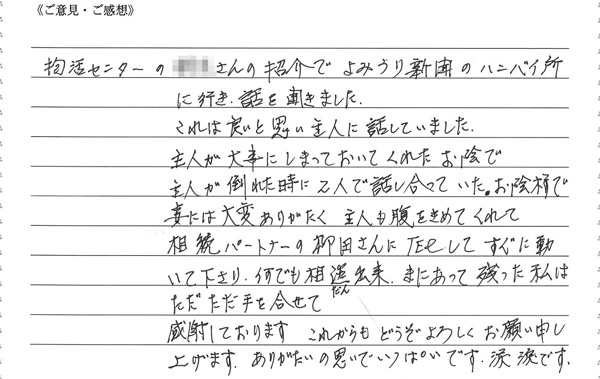 《ご意見・ご感想》
包括センターの さんの紹介で よみうり新聞のハンバイ所
に行き、話を聞きました。
これは良いと思い主人に話していました。
主人が大事にしまっておいてくれた お陰で
主人が倒れた時に 2人で話し合っていた。お陰様で
妻には大変ありがたく 主人も腹をきめてくれて
相続パートナーの柳田さんにTELして すぐに動
いて下さり、何でも相談出来、まにあって 残った私は
だん
ただただ手を合せて
感謝しております これからも どうぞよろしく お願い申し
上げます。ありがたいの思いでいっぱいです。涙涙です。